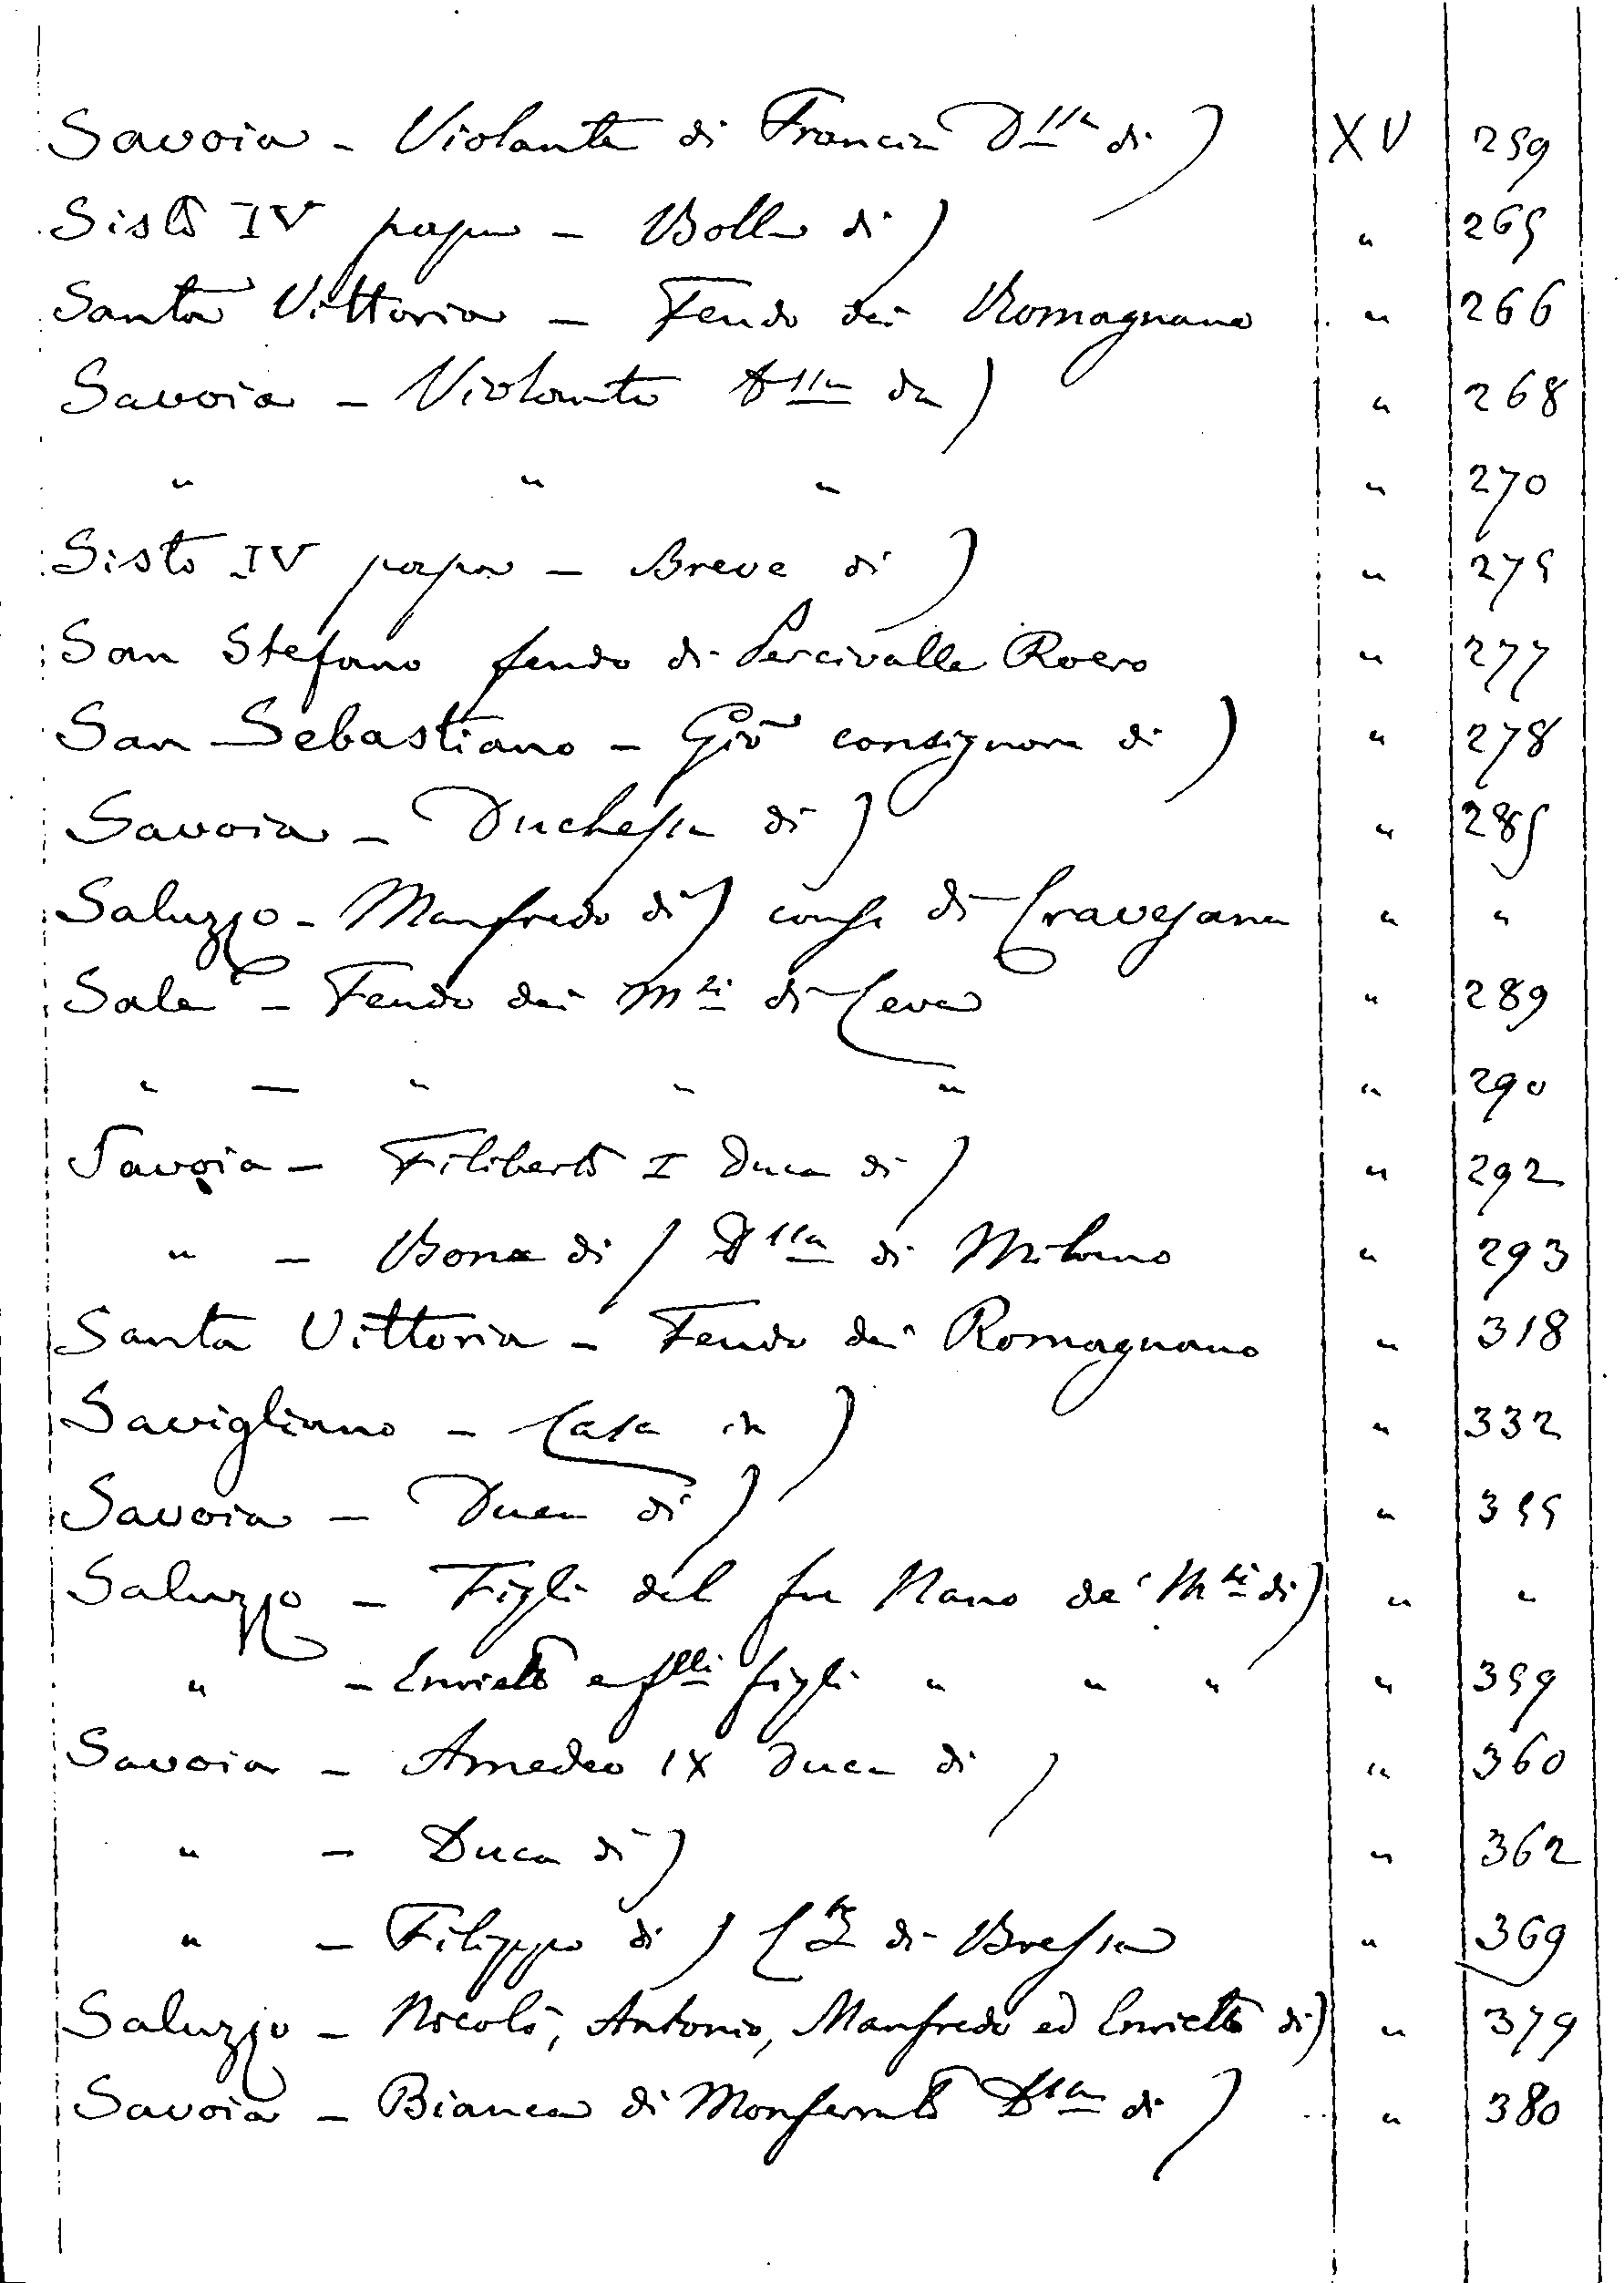 Savoia - Violante di Francia D.lla di) XV 259
Sisto IV papa - Bolla di) " 265
Santa Vittoria - Feudo dei Romagnano " 266
Savoia - Violante D.lla da) " 268
" " " " 270
Sisto IV papa - Breve di) " 275
San Stefano feudo di Percivalle Roero " 277
San Sebastiano - Gio consignore di) " 278
Savoia - Duchessa di) " 285
Saluzzo - Manfredo di) consig. di Cravesana " "
Sale - Feudo dei M.si di Ceva " 289
" - " " " " 290
Savoia - Filiberto I Duca di) " 292
" - Bona di) D.lla di Milano " 293
Santa Vittoria - Feudo dei Romagnano " 318
Savigliano - Casa in) " 332
Savoia - Duca di) " 355
Saluzzo - Figli del fu Nano de' M.si di) " "
" - Enrietto e f.lli figli " " " " 359
Savoia - Amedeo IX Duca di) " 360
" - Duca di) " 362
" - Filippo di) C.te di Bressa " 369
Saluzzo - Nicolò, Antonio, Manfredo ed Enrietto di) " 379
Savoia - Bianca di Monferrato D.sa di) " 380